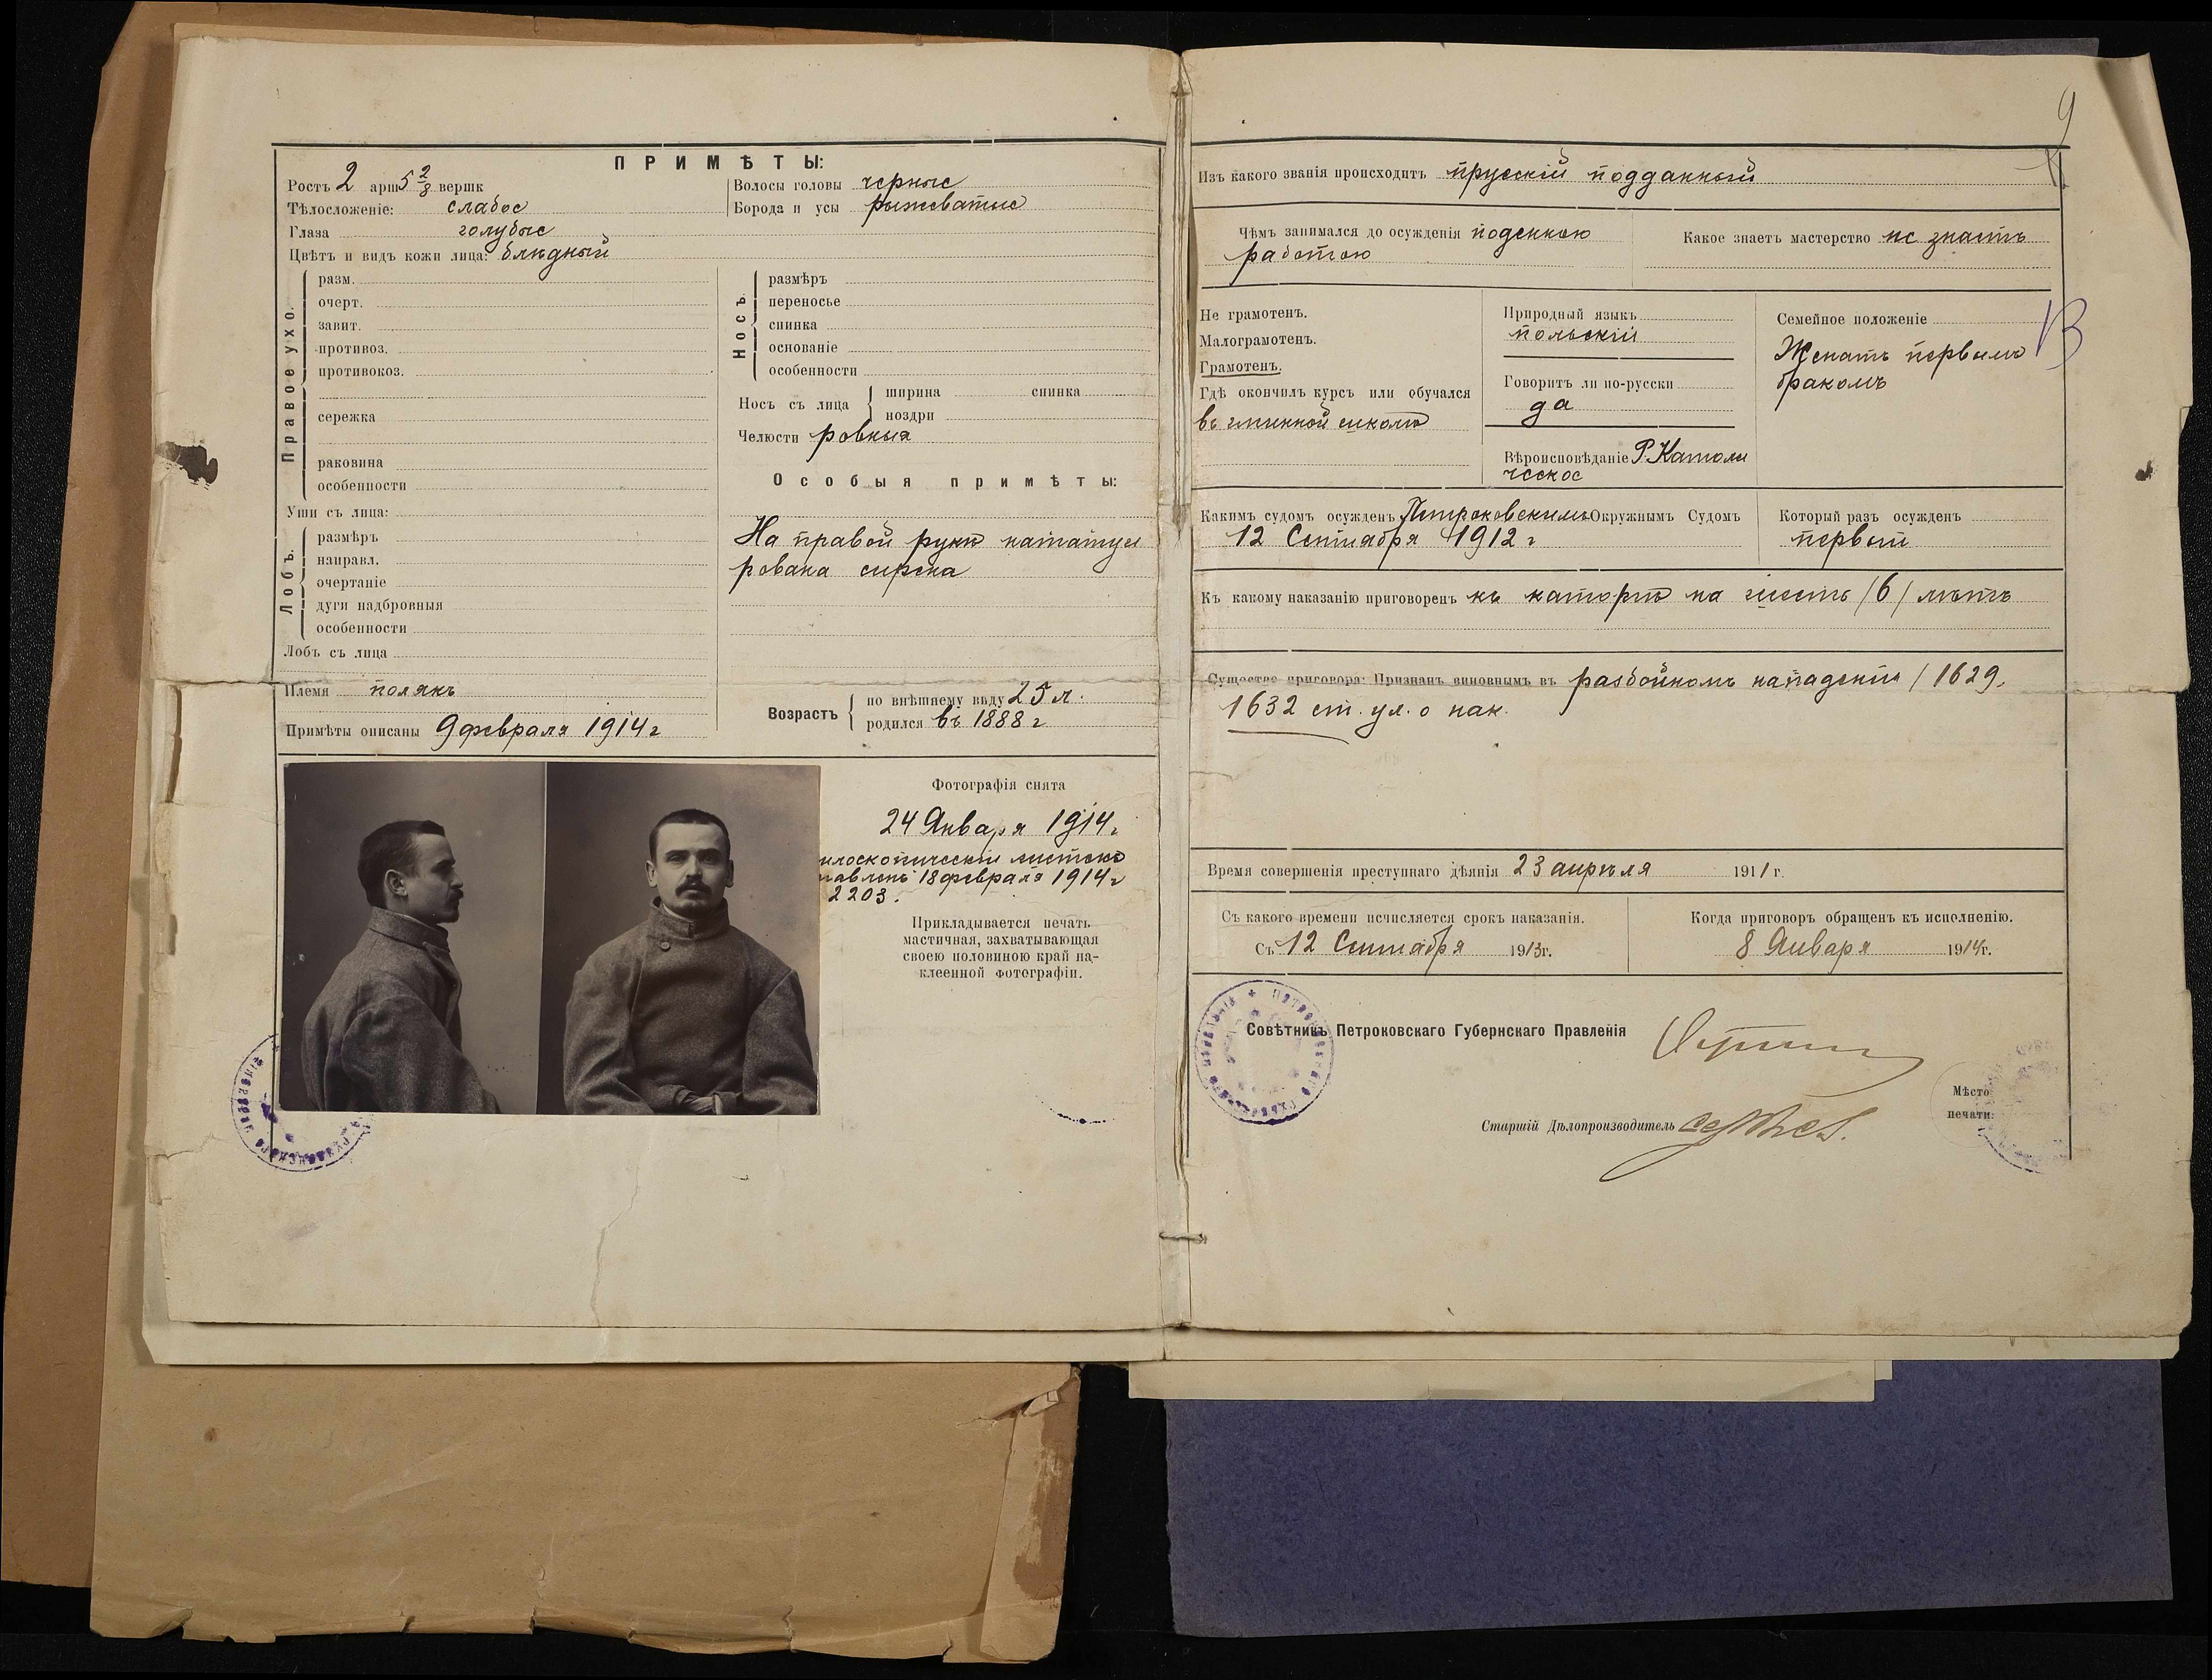 ПРИМѢТЫ:
Ростъ 2 арш 5 2/8 вершк
Тѣлосложеніе: слабое
Глаза голубые
Цвѣтъ и видъ кожи лица: блѣдный
Волосы головы черные
Борода и усы рыжеватые
Правое ухо.
разм.
очерт.
завит.
противоз.
противокоз.
сережка
раковина
особенности
Уши съ лица:
Лобъ.
размѣръ
направл.
очертаніе
дуги надбровныя
особенности
Лобъ съ лица
Племя полякъ
Примѣты описаны 9 февраля 1914 г
Носъ.
размѣръ
переносье
спинка
основаніе
особенности
Носъ съ лица ширина спинка
ноздри
Челюсти ровныя
Особыя примѣты:
На правой рукѣ нататуи
рована сирена
Возрастъ
по внѣшнему виду 25 л.
родился въ 1888 г
Фотографія снята
24 Января 1914 г
илоскопическій листокъ
авленъ 18 февраля 1914 г
2203.
Прикладывается печать
мастичная, захватывающая
своею половиною край на-
клеенной фотографіи.
9
Изъ какого званія происходитъ прусскій подданный
Чѣмъ занимался до осужденія поденною
работою
Какое знаетъ мастерство не знаетъ
Не грамотенъ.
Малограмотенъ.
Грамотенъ.
Гдѣ окончилъ курсъ или обучался
въ гминной школѣ
Природный языкъ
польскій
Говоритъ ли по-русски
да
Вѣроисповѣданіе Р. Католи
ческое
Семейное положеніе
Женатъ первымъ
бракомъ
Какимъ судомъ осужденъ Петроковскимъ Окружнымъ Судомъ
12 Сентября 1912 г
Который разъ осужденъ
первый
Къ какому наказанію приговоренъ къ каторгѣ на шесть /6/ лѣтъ
Существо приговора: Признанъ виновнымъ въ разбойномъ нападеніи / 1629,
1632 ст. ул. о нак.
Время совершенія преступнаго дѣянія 23 апрѣля 1911 г.
Съ какого времени исчисляется срокъ наказанія.
Съ 12 Сентября 1913 г.
Когда приговоръ обращенъ къ исполненію.
8 Января 1914 г.
Совѣтникъ Петроковскаго Губернскаго Правленія
Старшій Дѣлопроизводитель
Мѣсто
печати: